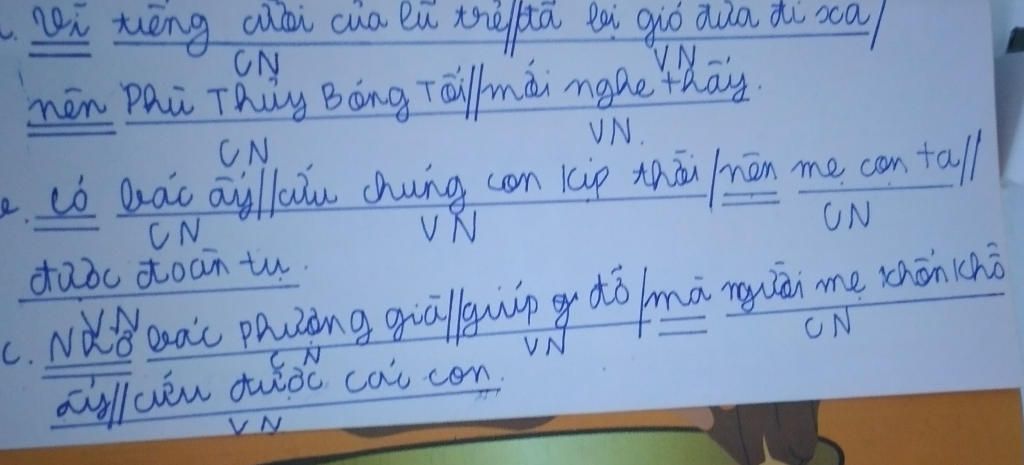 Vì tiếng cười của lũ trẻ//đã lại gió đưa đi xa/
CN VN
nên Phù Thủy Bóng Tối//mới nghe thấy.
CN VN.
có bác ấy//cứu chúng con kịp thời/nên mẹ con ta//
CN VN CN
được đoàn tụ.
VN
c. Nhờ bác phượng già//giúp đỡ/mà người mẹ khốn khổ
CN VN CN
ấy//cứu được các con.
VN